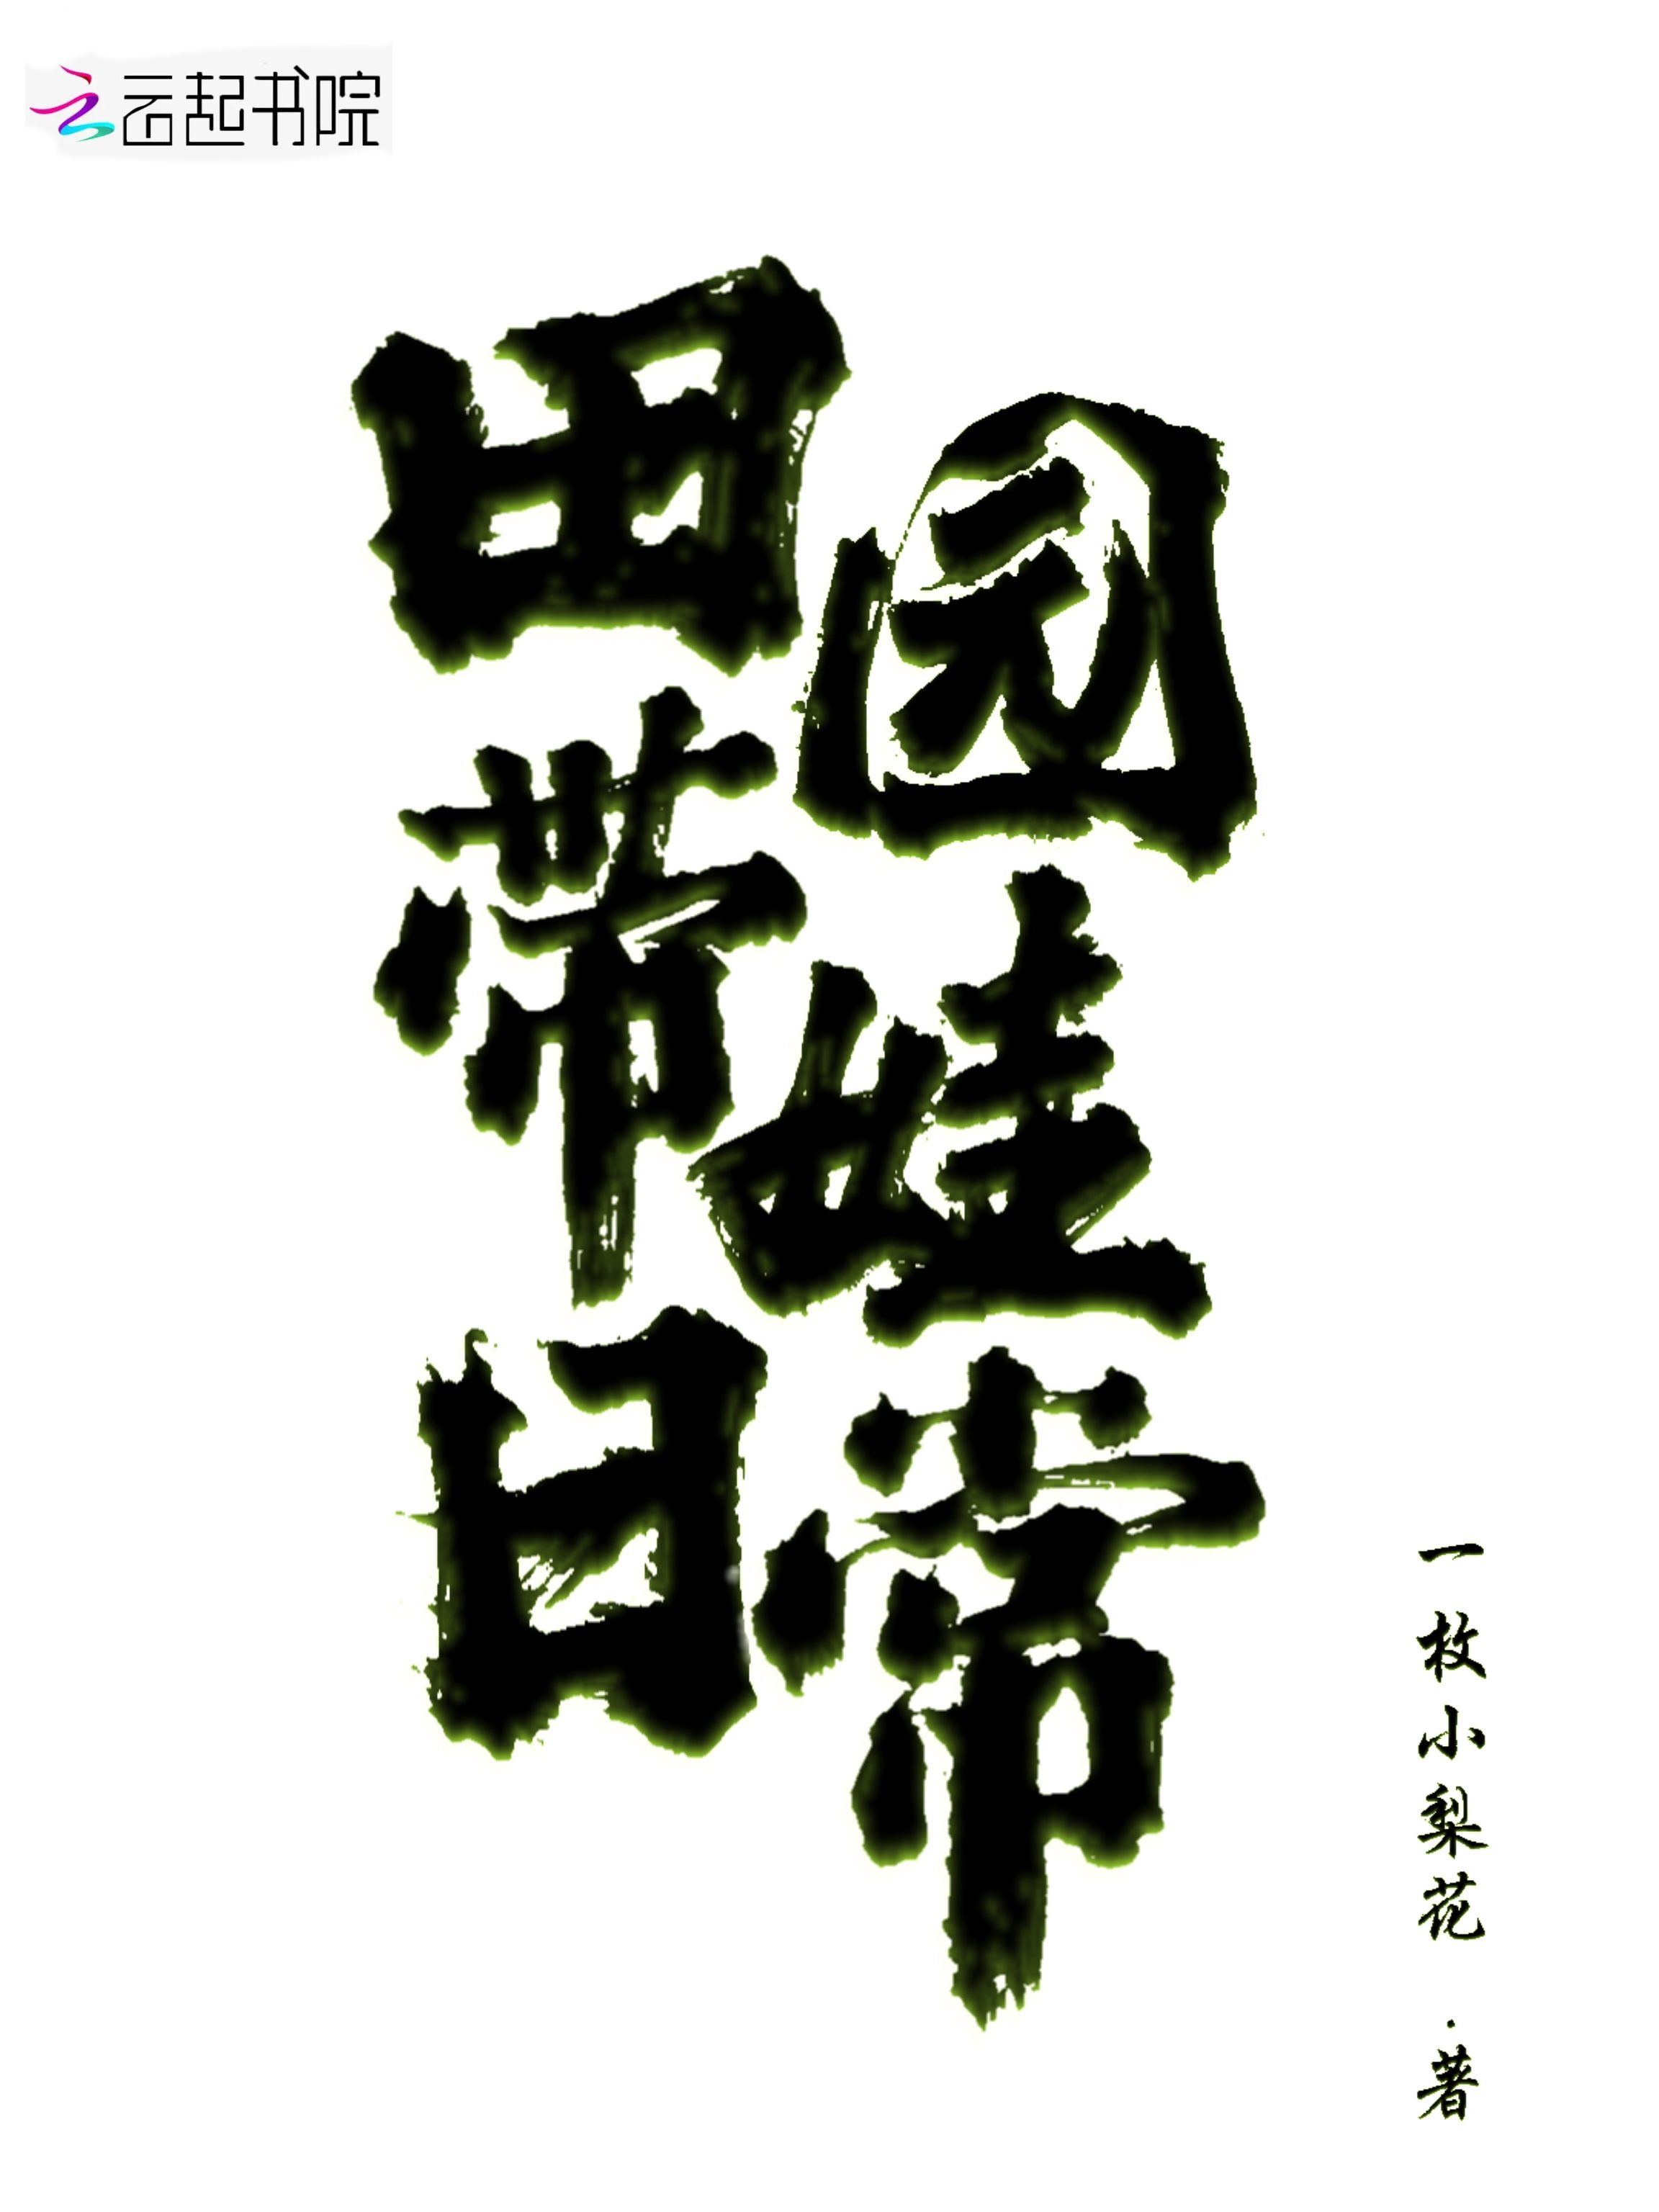 云起书院
田园
带娃
日常
一枚小梨花·著